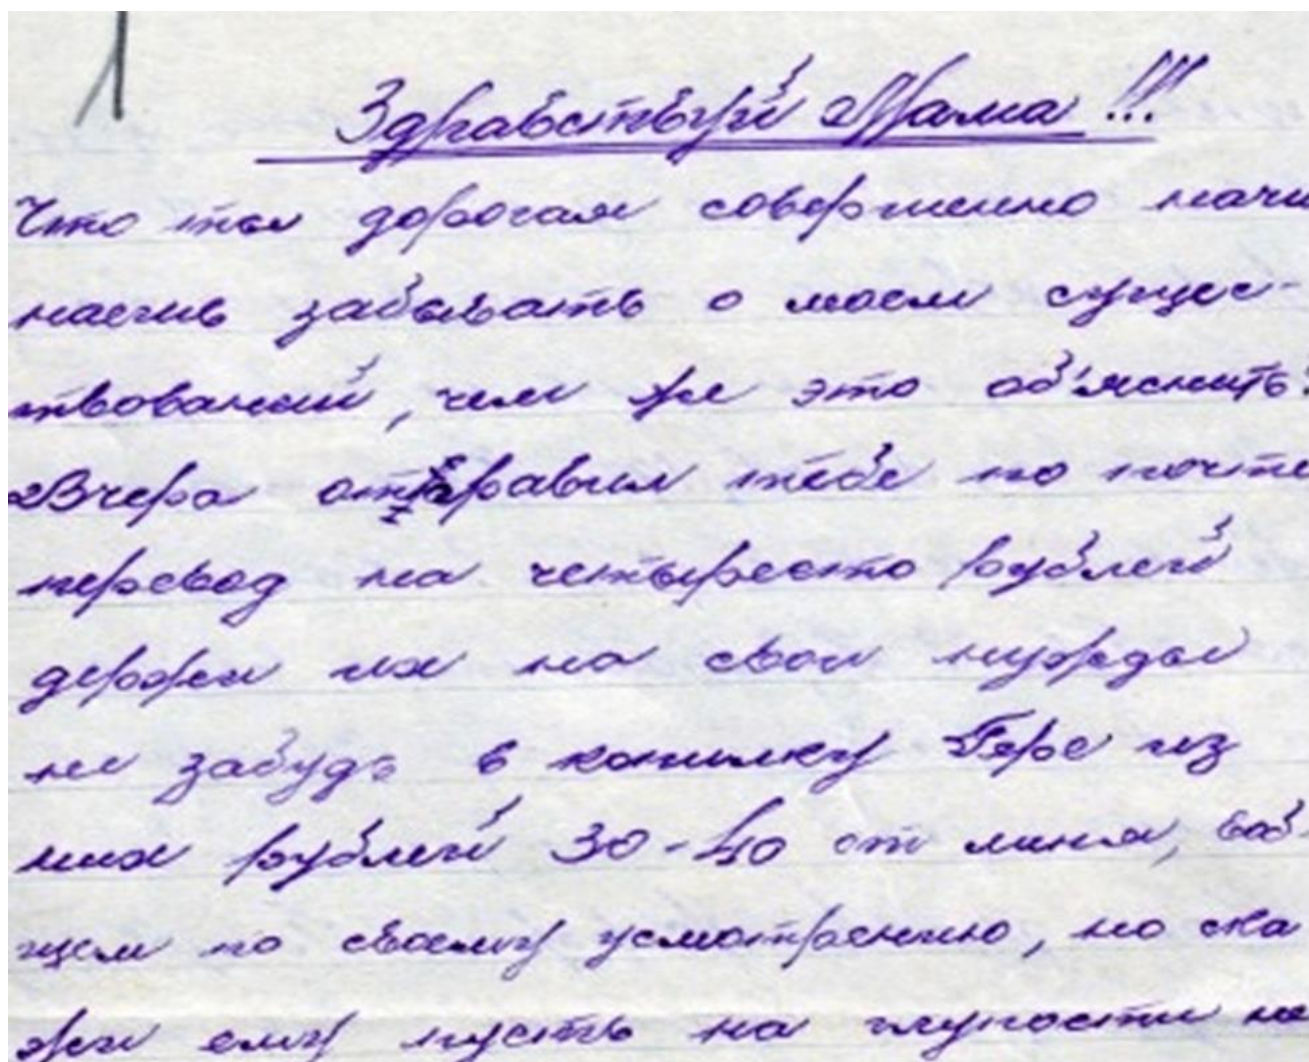 1
Здравствуй Мама!!!
Что ты дорогая совершенно начи
наешь забывать о моем сущес-
твований, чем же это об'яснить?
Вчера отправил тебе по почте
перевод на четыресто рублей
держи их на свои нужды
не забудь в копилку Гере из
них рублей 30-40 от миня, воб
щем по своему усмотрению, но ска
жи ему пусть на глупости не